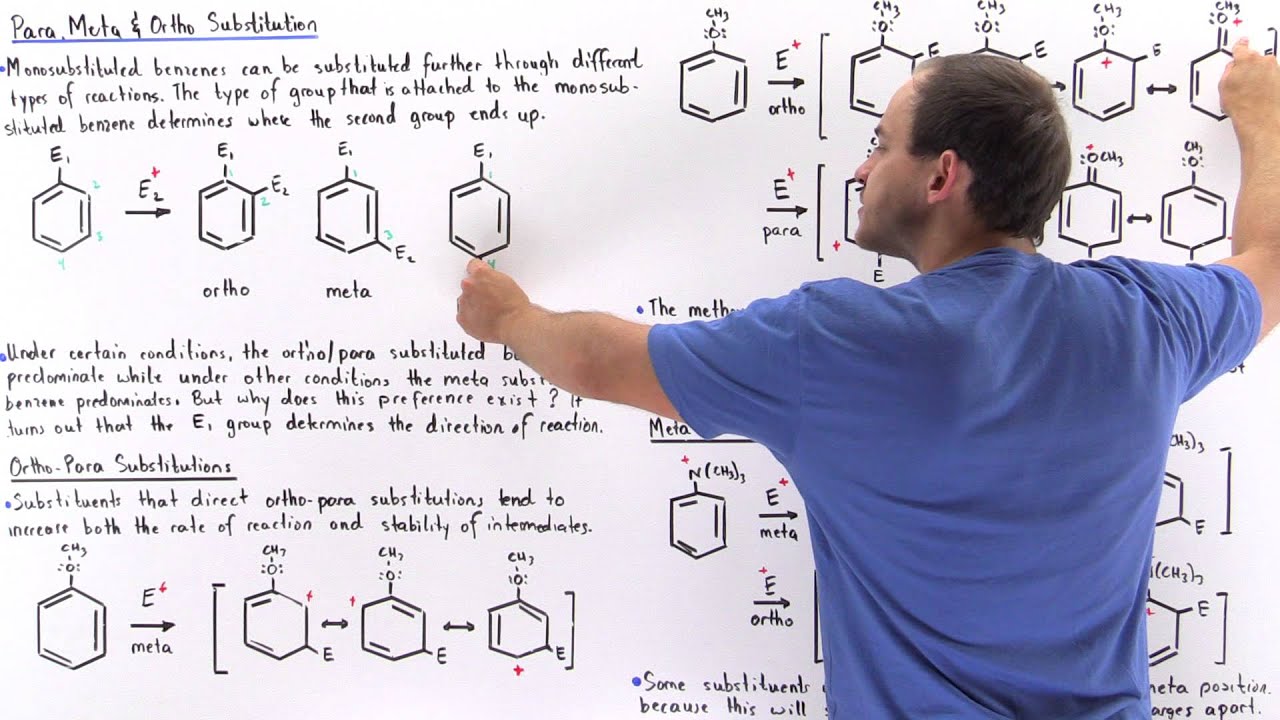 Para, Meta & Ortho Substitution
•Monosubstituted benzenes can be substituted further through different
types of reactions. The type of group that is attached to the monosub-
stituted benzene determines where the second group ends up.
E₁
2
3
4
E₂+
E₁
1
E₂
2
ortho
E₁
1
3
E₂
meta
E₁
1
4
•Under certain conditions, the ortho/para substituted
predominate while under other conditions the meta
benzene predominates. But why does this preference exist? It
turns out that the E₁ group determines the direction of reaction.
Ortho-Para Substitutions
•Substituents that direct ortho-para substitutions tend to
increase both the rate of reaction and stability of intermediates.
CH₃
:O:
E+
meta
CH₃
:O:
+
E
CH₃
:O:
+
E
CH₃
:O:
E
+
CH₃
:O:
E+
ortho
CH₃
:O:
E
CH₃
:O:
CH₃
:O:
E
+
CH₃
:O
+
E+
para
+
E
+
:OCH₃
CH₃
:O:
•The
Meta
+
N(CH₃)₃
E+
meta
)₃
E
E+
ortho
(CH₃)₃
+
E
•Some substituents
meta position.
because this will
apart.